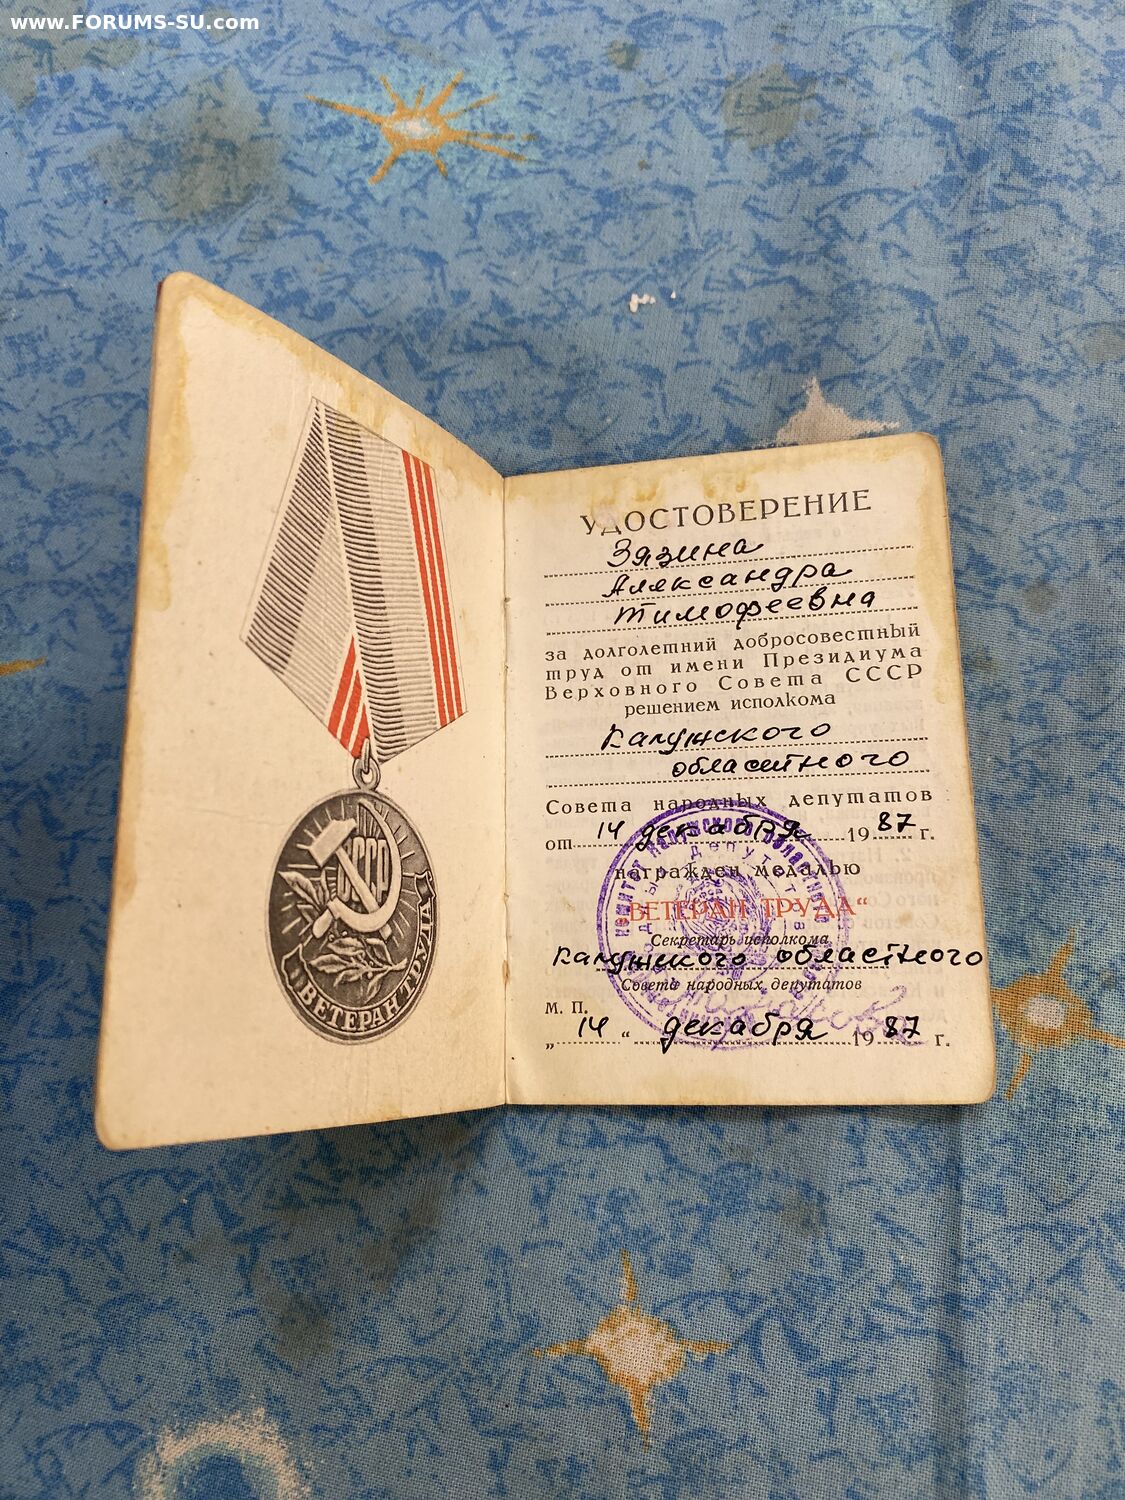 www.FORUMS-SU.com
СССР
ВЕТЕРАН ТРУДА
УДОСТОВЕРЕНИЕ
Зязина
Александра
Тимофеевна
за долголетний добросовестный
труд от имени Президиума
Верховного Совета СССР
решением исполкома
Калужского
областного
Совета народных депутатов
от 14 декабря 1987 г.
награжден медалью
„ВЕТЕРАН ТРУДА“
Секретарь исполкома
Калужского областного
Совета народных депутатов
М. П.
„ 14 “ декабря 1987 г.